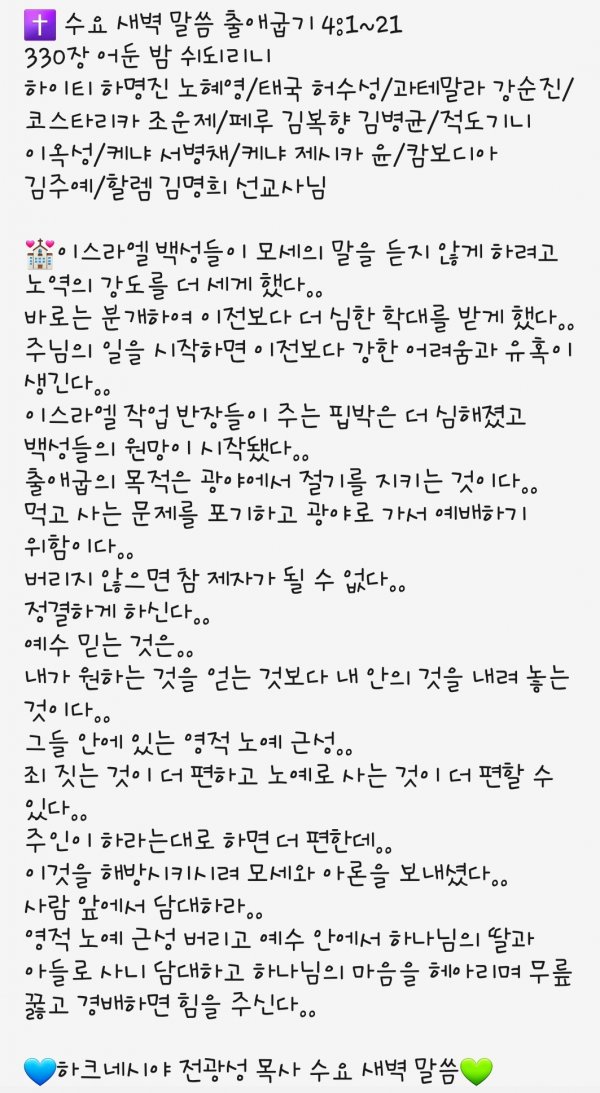 ✝️ 수요 새벽 말씀 출애굽기 4:1~21
330장 어둔 밤 쉬되리니
하이티 하명진 노혜영/태국 허수성/과테말라 강순진/
코스타리카 조운제/페루 김복향 김병균/적도기니
이옥성/케냐 서병채/케냐 제시카 윤/캄보디아
김주예/할렘 김명희 선교사님

💒이스라엘 백성들이 모세의 말을 듣지 않게 하려고
노역의 강도를 더 세게 했다。。
바로는 분개하여 이전보다 더 심한 학대를 받게 했다。。
주님의 일을 시작하면 이전보다 강한 어려움과 유혹이
생긴다。。
이스라엘 작업 반장들이 주는 핍박은 더 심해졌고
백성들의 원망이 시작됐다。。
출애굽의 목적은 광야에서 절기를 지키는 것이다。。
먹고 사는 문제를 포기하고 광야로 가서 예배하기
위함이다。。
버리지 않으면 참 제자가 될 수 없다。。
정결하게 하신다。。
예수 믿는 것은。。
내가 원하는 것을 얻는 것보다 내 안의 것을 내려 놓는
것이다。。
그들 안에 있는 영적 노예 근성。。
죄 짓는 것이 더 편하고 노예로 사는 것이 더 편할 수
있다。。
주인이 하라는대로 하면 더 편한데。。
이것을 해방시키시려 모세와 아론을 보내셨다。。
사람 앞에서 담대하라。。
영적 노예 근성 버리고 예수 안에서 하나님의 딸과
아들로 사니 담대하고 하나님의 마음을 헤아리며 무릎
꿇고 경배하면 힘을 주신다。。

💙하크네시야 전광성 목사 수요 새벽 말씀💚